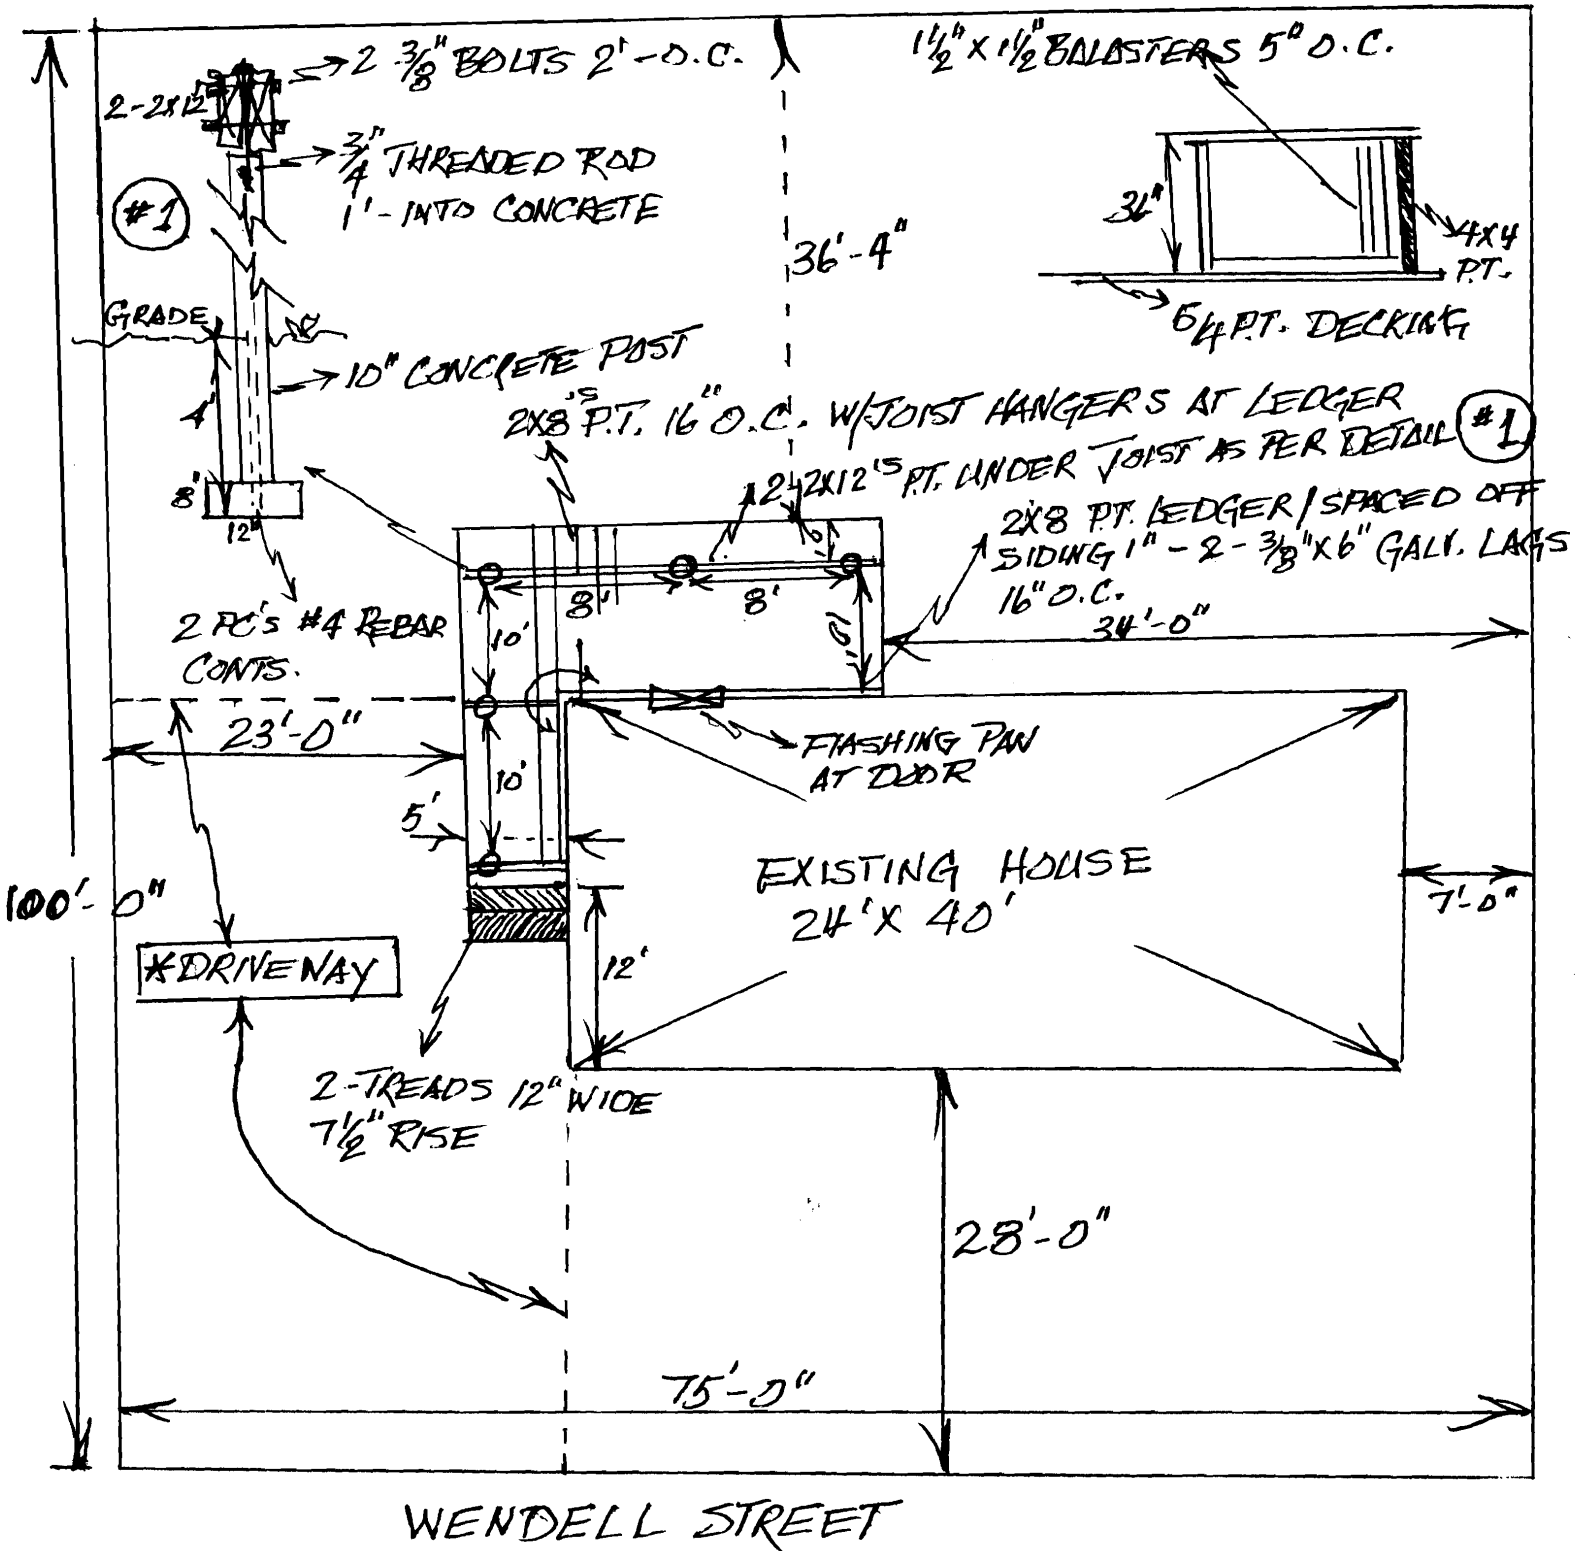 2 3/8" BOLTS 2'-O.C.
2-2X12
3/4" THREADED ROD
1'-INTO CONCRETE
#1
GRADE
10" CONCRETE POST
4'
8"
12"
2 PC'S #4 REBAR
CONTS.
1 1/2" X 1 1/2" BALASTERS 5" O.C.
36"
4X4
P.T.
5/4 P.T. DECKING
36'-4"
2X8'S P.T. 16" O.C. W/JOIST HANGERS AT LEDGER
2-2X12'S P.T. UNDER JOIST AS PER DETAIL #1
2X8 P.T. LEDGER/SPACED OFF
SIDING 1" - 2 - 3/8" X 6" GALV. LAGS
16" O.C.
34'-0"
8'
8'
10'
10'
23'-0"
10'
5'
FLASHING PAN
AT DOOR
EXISTING HOUSE
24' X 40'
7'-0"
100'-0"
*DRIVEWAY
12'
2-TREADS 12" WIDE
7 1/2" RISE
28'-0"
75'-0"
WENDELL STREET